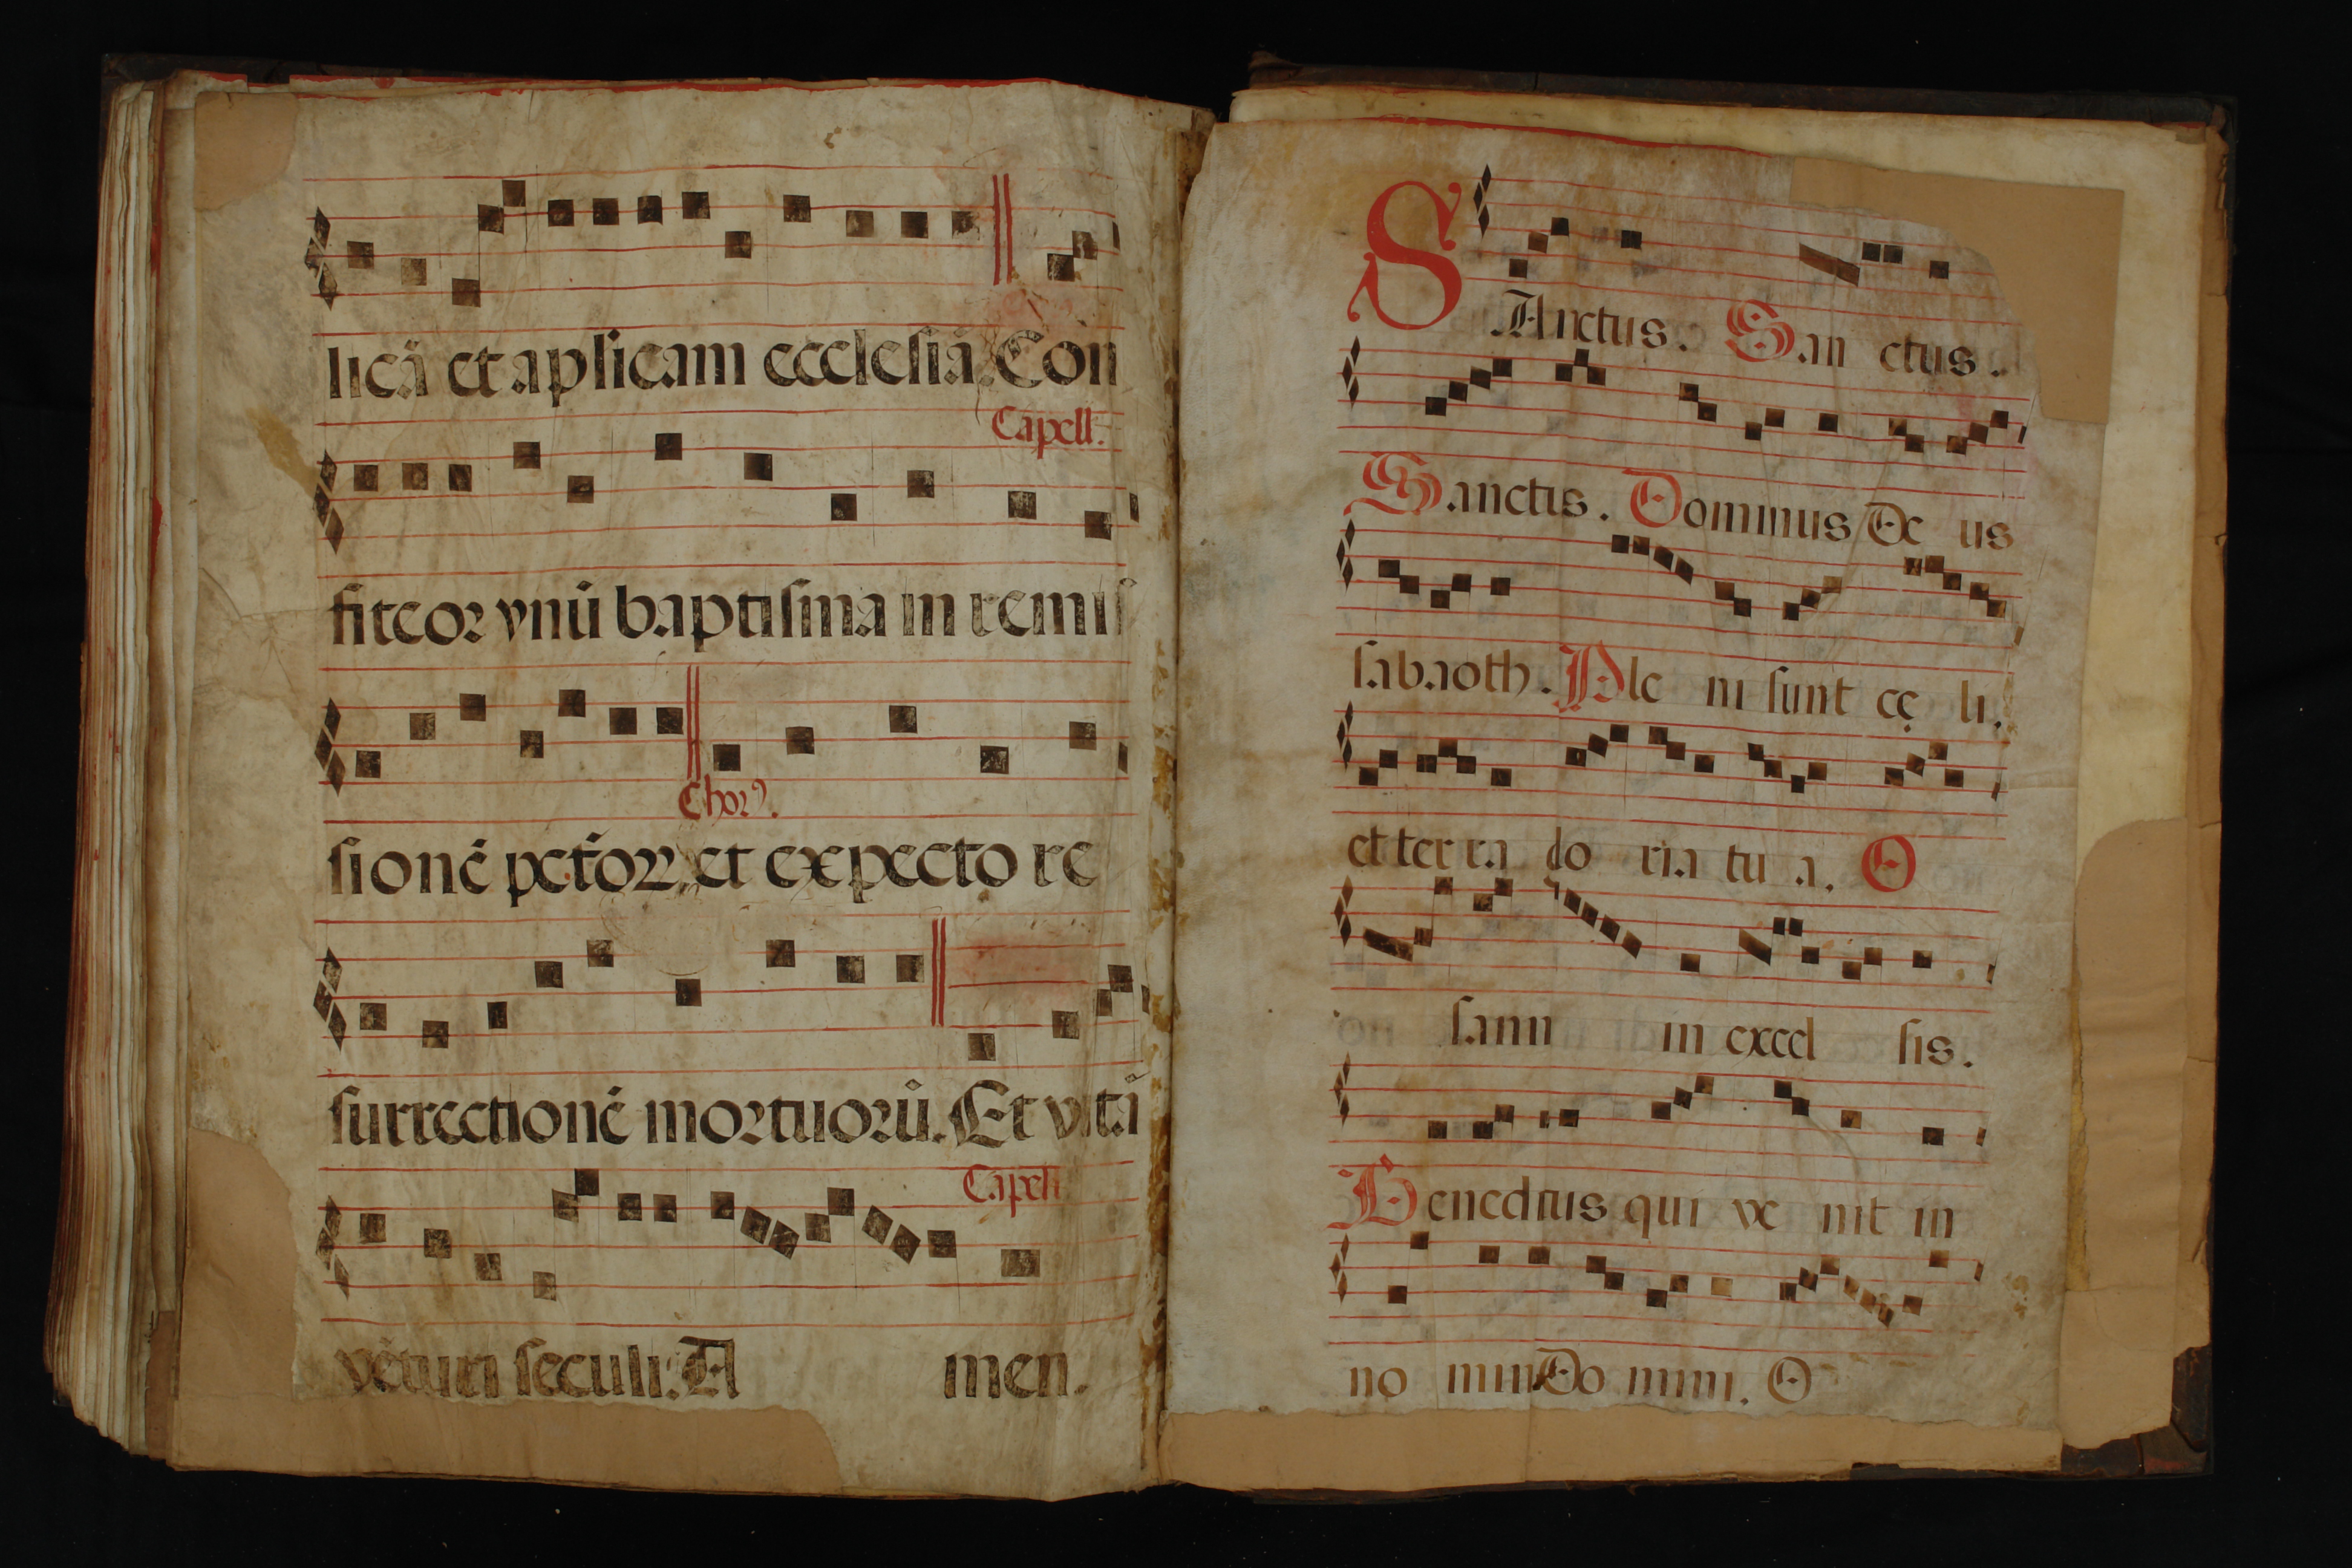 licā et aplicam ecclesiā. Con
Capell.
fiteor vnū baptisma in remis
Chorꝰ.
sionē pctōꝝ, et expecto re
surrectionē mortuorū. Et vitā
Capell
vēturi seculi. A men.
SAnctus. San ctus.
Sanctus. Dominus De us
sabaoth. Ple ni sunt cę li.
et ter ra glo ria tu a. O
sanna in excel sis.
Benedictus qui ve nit in
no mine Do mini. O